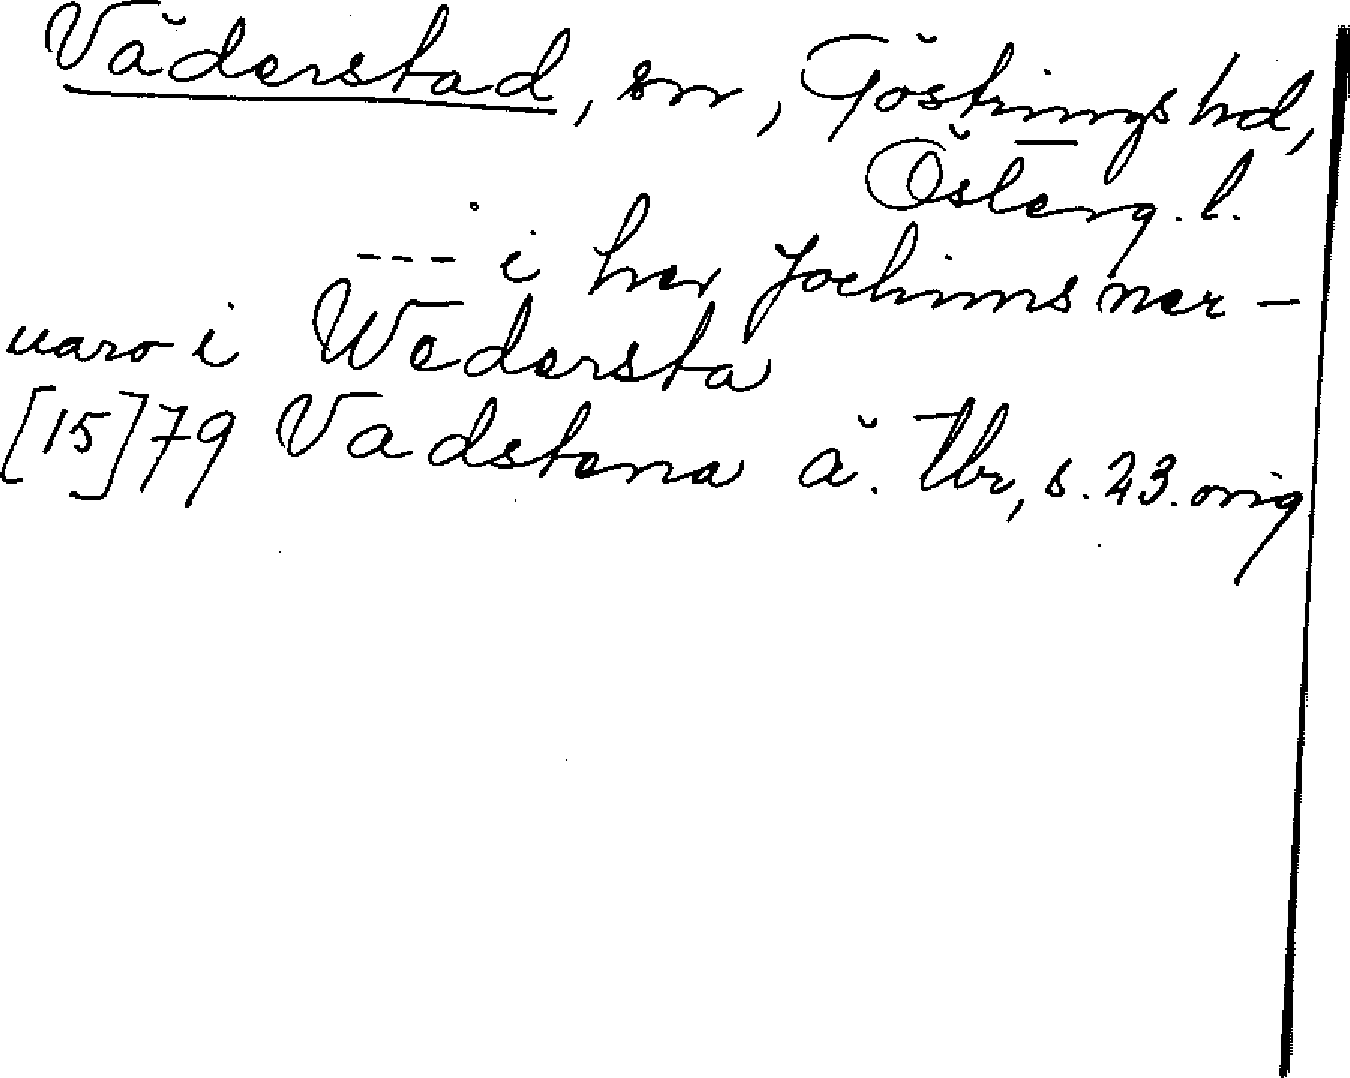 Väderstad, sn, Göstrings hd,
Österg. l.
--- i her Jochims ner-
uaro i Wedersta
[15]79 Vadstena ä. tbr, s. 23. orig